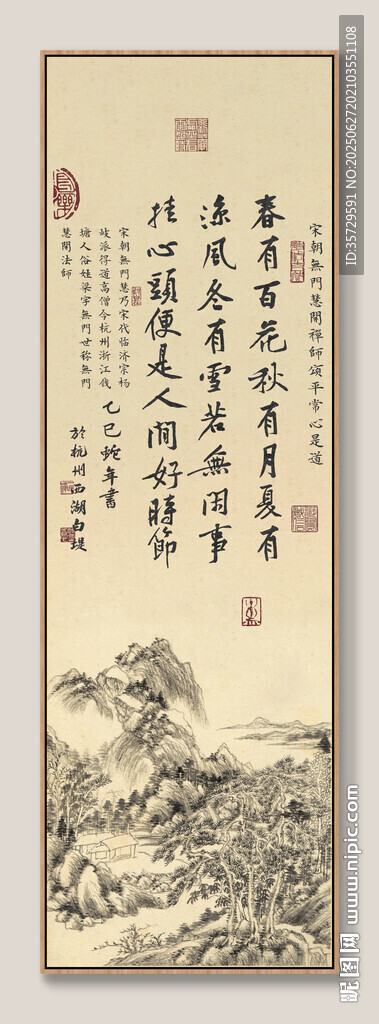 宋朝無門慧開禪師頌平常心是道
春有百花秋有月夏有
涼風冬有雪若無閑事
挂心頭便是人間好時節
宋朝無門慧乃宋代临济宗杨
岐派得道高僧今杭州浙江伐
塘人俗姓梁字無門世称無門
慧開法師
乙巳蛇年書
於杭州西湖白堤
ID:35729591 NO:20250627202103551108
昵图网 www.nipic.com